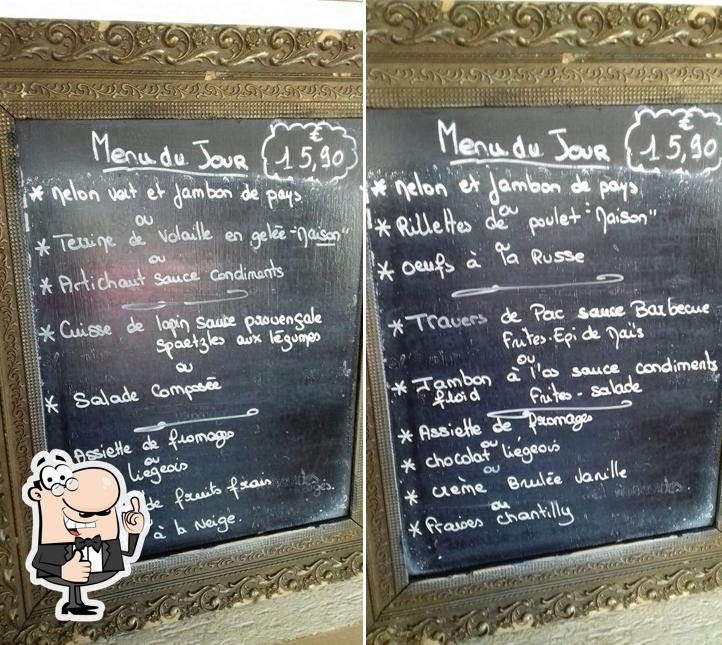 Menu du Jour
€
15,90
* Melon vert et Jambon de pays
ou
* Terrine de Volaille en gelée "Maison"
ou
* Artichaut sauce condiments
* Cuisse de lapin sauce provençale
Spaetzles aux légumes
ou
* Salade Composée
Assiette de fromages
ou
liégeois
de fruits frais
à la Neige.
Menu du Jour
€
15,90
* Melon et Jambon de pays
ou
* Rillettes de poulet "Maison"
ou
* Oeufs à la Russe
* Travers de Porc sauce Barbecue
Frites-Epi de Maïs
ou
* Jambon à l'os sauce condiments
froid Frites - salade
* Assiette de fromages
* chocolat liégeois
ou
ou
* crème Brulée Vanille
ou
* fraises chantilly